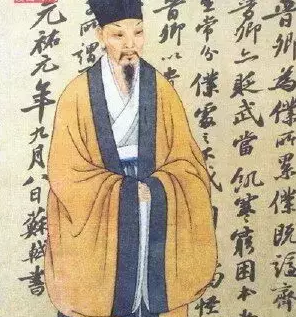 晉卿為僕所累僕既謫齊
晉卿亦貶武當飢寒窮困本書
生常分僕處之不戚
怪
晉卿以貴
所謂
元祐元年九月八日蘇軾書